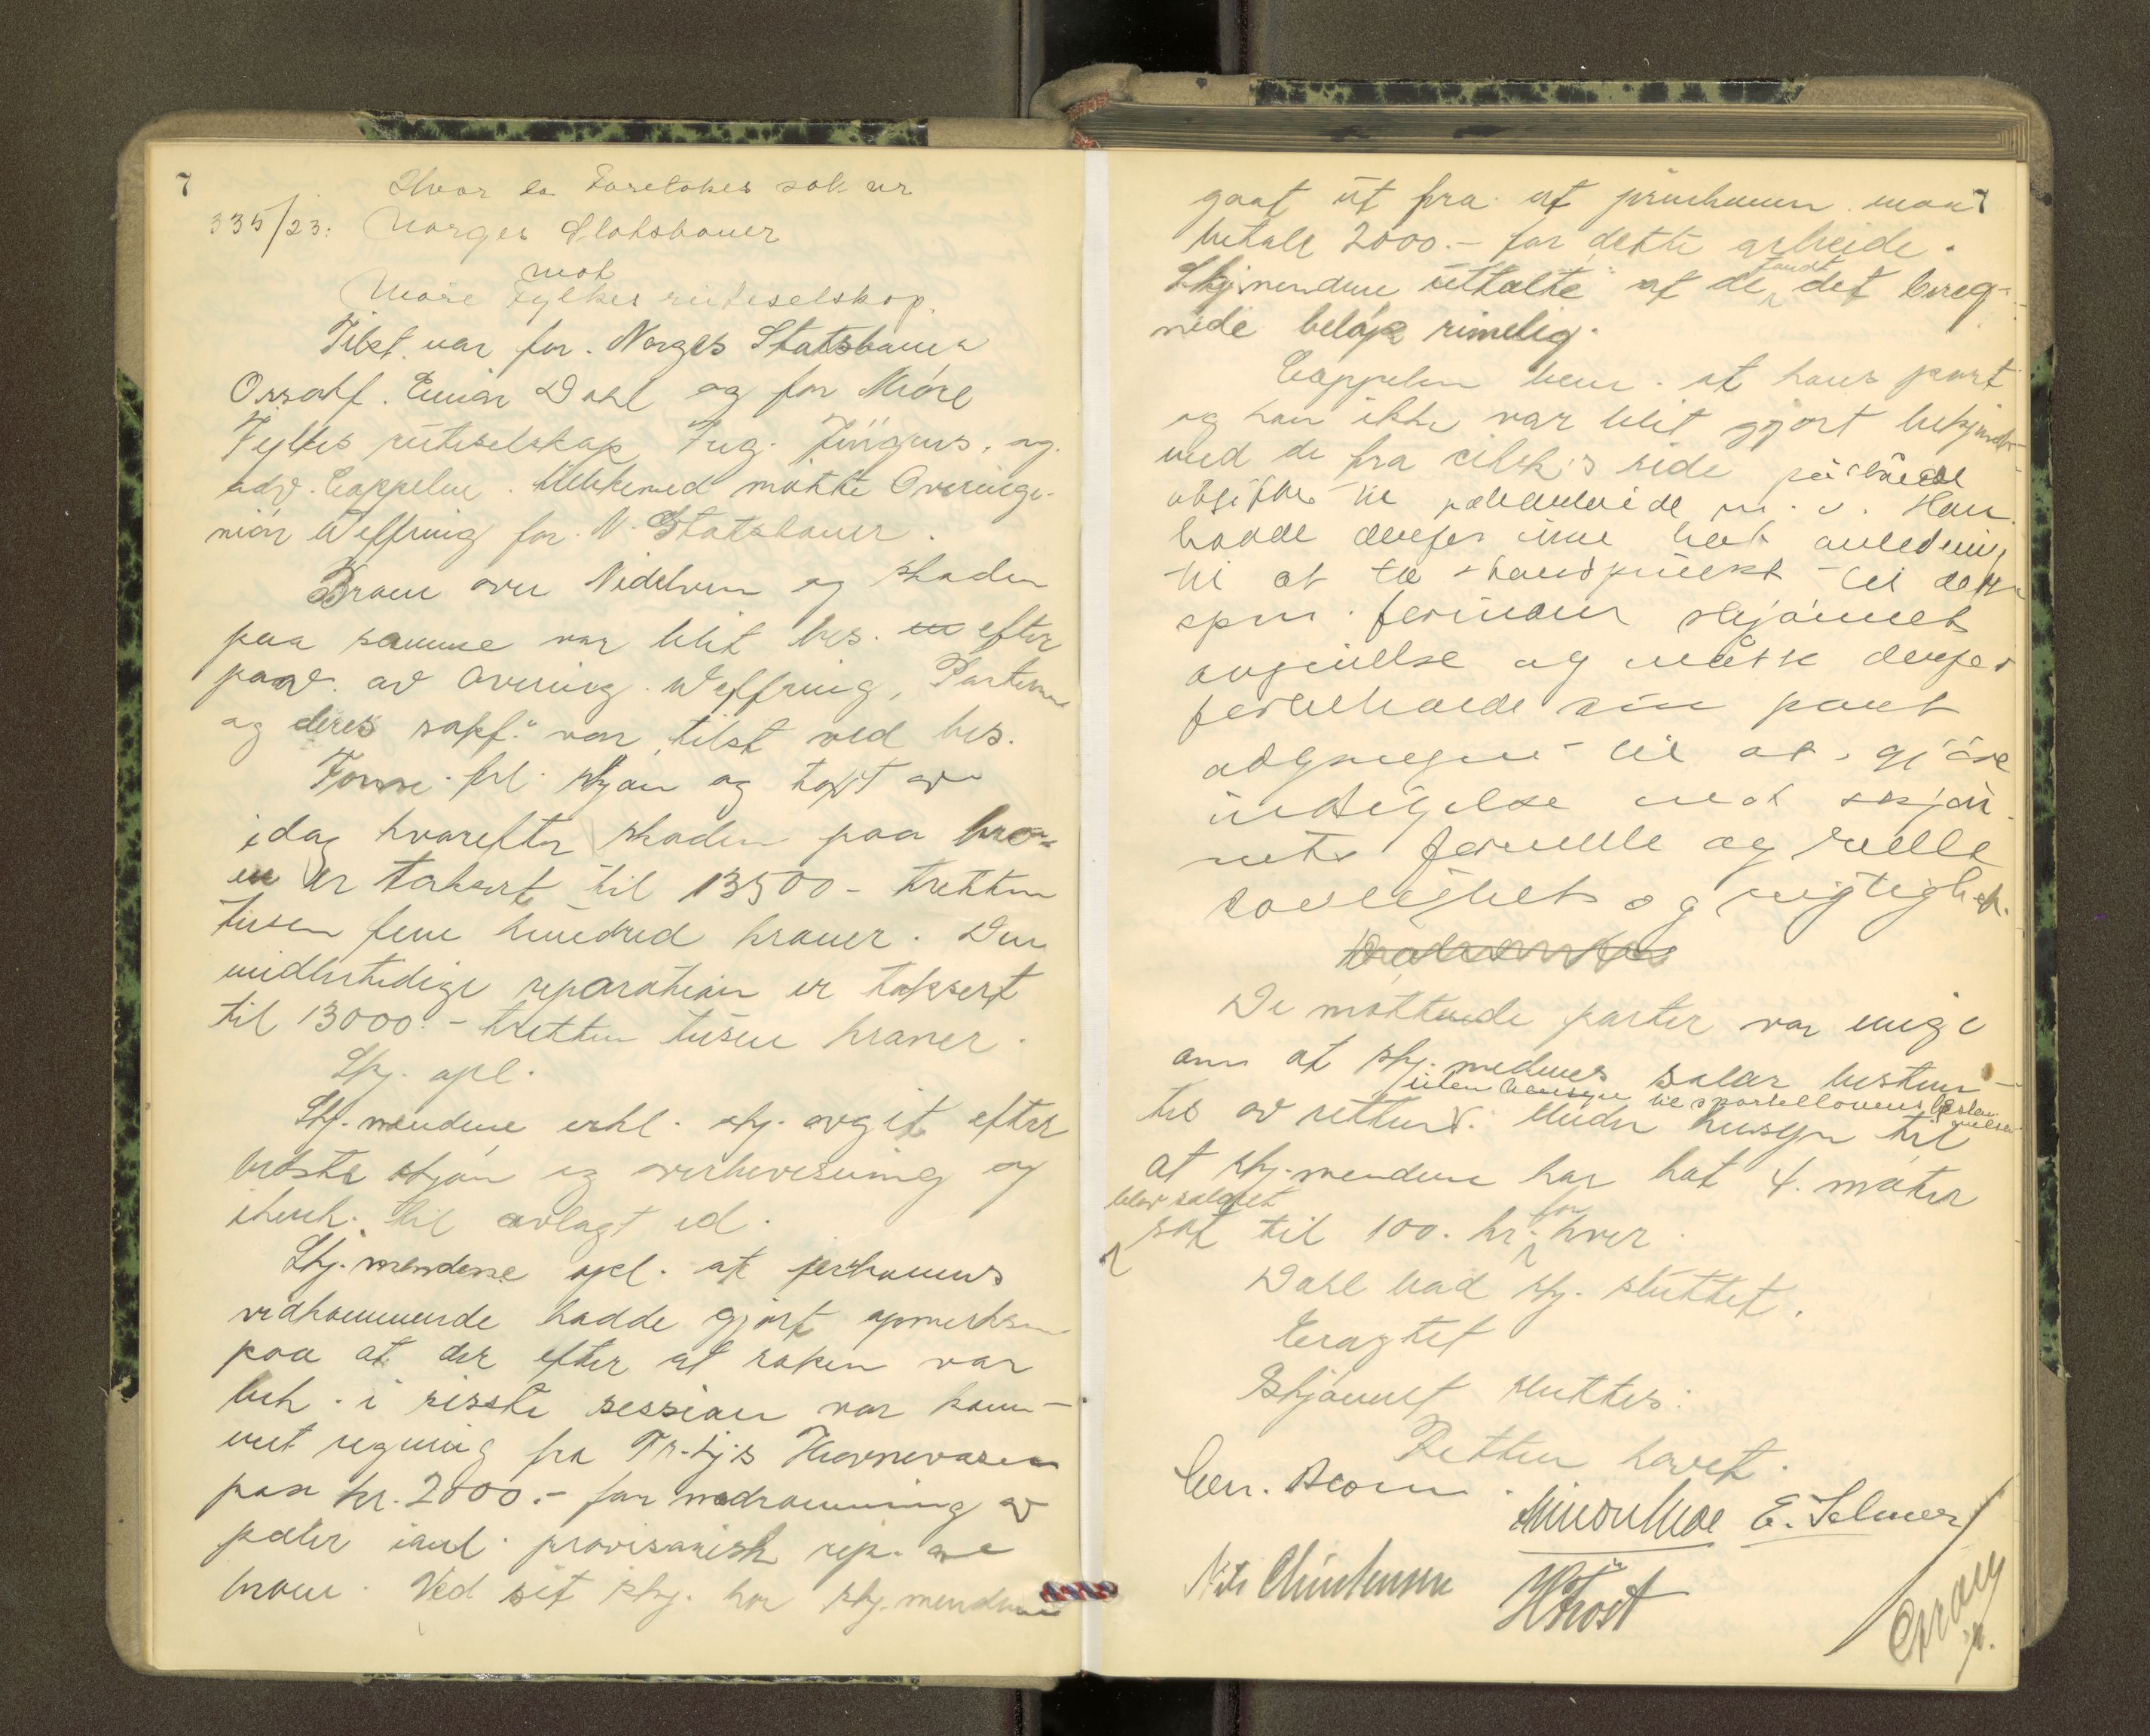 7
Hvor da Foretokes sak nr
335/23: Norges Statsbaner
mot
Møre Fylkes ruteselskap.
Tilst. var for Norges Statsbaner
Orssakf. Einar Dahl og for Møre
Fylkes ruteselskap Ing. Jürgens, og
adv. Cappelen. Likkemed møtte Overinge-
niør Weffring for N. Statsbaner.
Broen over Nidelven og skaden
paa samme var blit bes. efter
paav. av Overing. Weffring, Parterne
og deres sakf. var tilst ved bes.
Form. frl. skjøn og takst av
idag hvorefter skaden paa bro-
en er taksert til 13500 - tretten
tusen fem hundred kroner. Den
midlertidige reparation er taksert
til 13000.- tretten tusen kroner.
Skj. opl.
Skj. mendene erkl. skj. avgit efter
bedste skjøn og overbevisning og
ihenh. til avlagt ed.
Skj. mendene opl. at
vedkommende hadde gjort opmerksom
paa at der efter at saken var
beh. i sisste session var kom-
met regning fra Tr.hj.s Havnevæsen
paa kr. 2000.- for nedramning av
pæler ianl. provisorisk rep. av
broen. Ved sit skj. har skj. mendene
7
gaat ut fra at maa
betale 2000.- for dette arbeide.
Skj. mendene uttalte at de fandt det bereg-
nede beløp rimelig.
Cappelen bem. at hans part
og han ikke var blit gjort bekjendt
med de fra side
utgifter til m. v. Han
hadde derfor ikke hat anledning
til at ta standpunkt til dette
spm. forinden skjønnets
avgivelse og måtte derfor
forbeholde sin part
adgangen til at gjøre
indsigelse mot skjøn-
nets formelle og reelle
lovlighet og rigtighet.
De møttende parter var enige
om at skj. mednes salær bestem-
uten hensyn til sportellovens bestem-
melser
tes av retten. Under hensyn til
at skj. mendene har hat 4. møter
blev salæret
sat til 100. kr. for hver.
Dahl bad skj. sluttet.
Eragtet
Skjønnet sluttes.
Retten hævet.
E. Selmer
Nils Christensen
H Trost